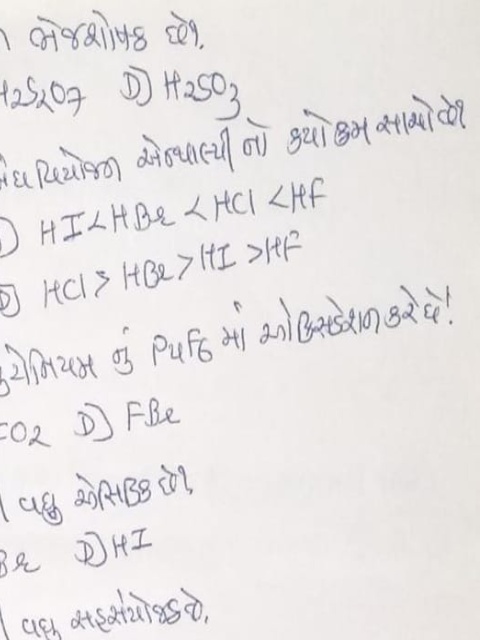 ભેજશોષક છે?
H2S2O7 D) H2SO3
બંધ વિયોજન એન્થાલ્પી નો કયો ક્રમ સાચો છે?
HI < HBr < HCl < HF
D) HCl > HBr > HI > HF
નું PuF6 માં ઓક્સિડેશન કરે છે!
D) FBr
વધુ એસિડિક છે?
Br D) HI
વધુ સહસંયોજક છે.